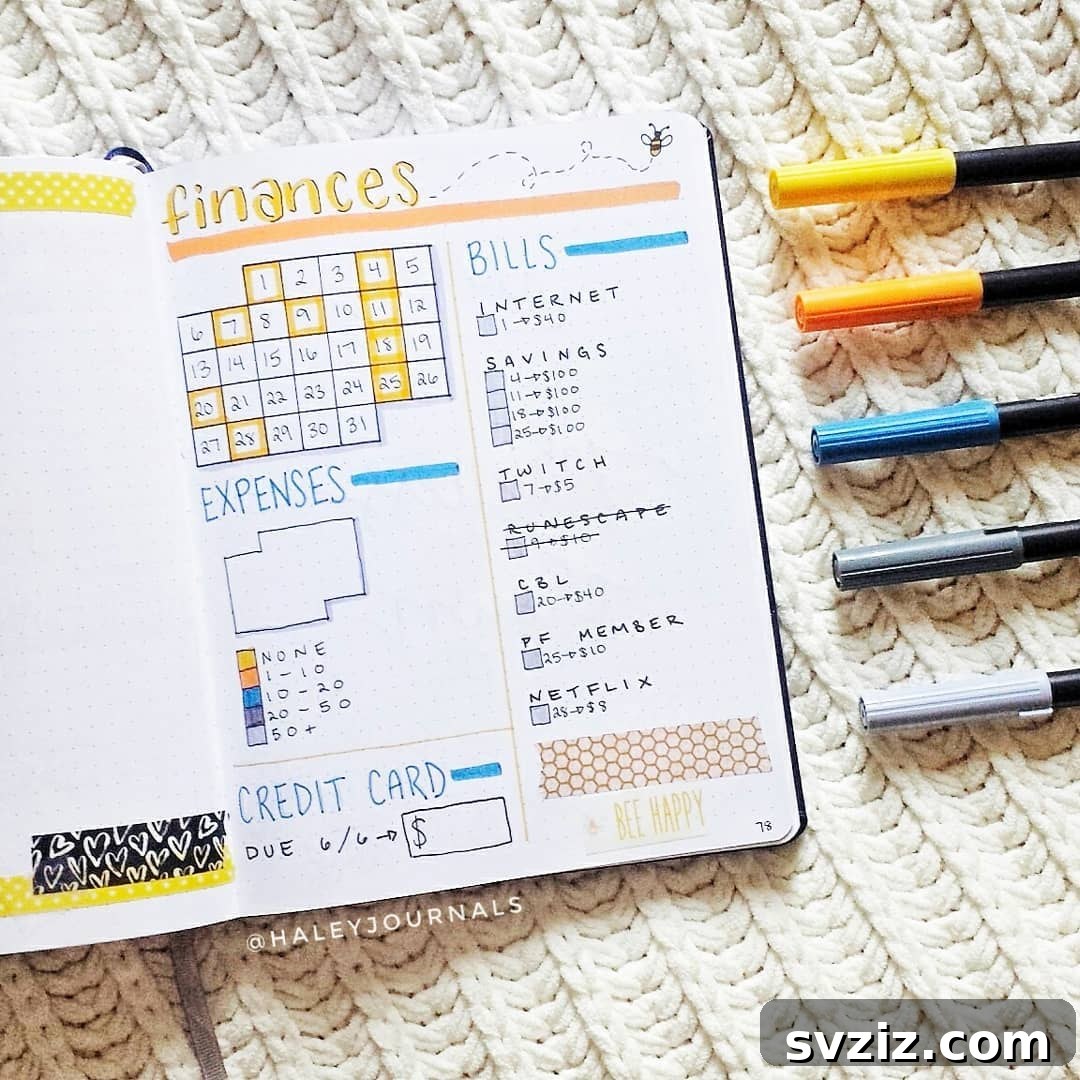 finances
1 2 3 4 5
6 7 8 9 10 11 12
13 14 15 16 17 18 19
20 21 22 23 24 25 26
27 28 29 30 31
EXPENSES
NONE
1-10
10-20
20-50
50+
CREDIT CARD
DUE 6/6→ $
BILLS
INTERNET
1→$40
SAVINGS
4→$100
11→$100
18→$100
25→$100
TWITCH
7→$5
RUNESCAPE
9→$10
CBL
20→$40
PF MEMBER
25→$10
NETFLIX
28→$8
BEE HAPPY
78
@HALEYJOURNALS
svziz.com